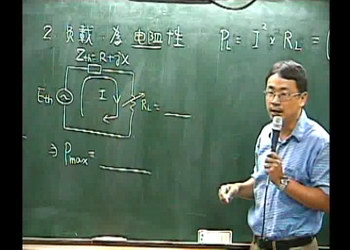 2. 負載為電阻性
P_L = I² × R_L = (
Z_th = R + jX
E_th
I
R_L =
⇒ P_max =